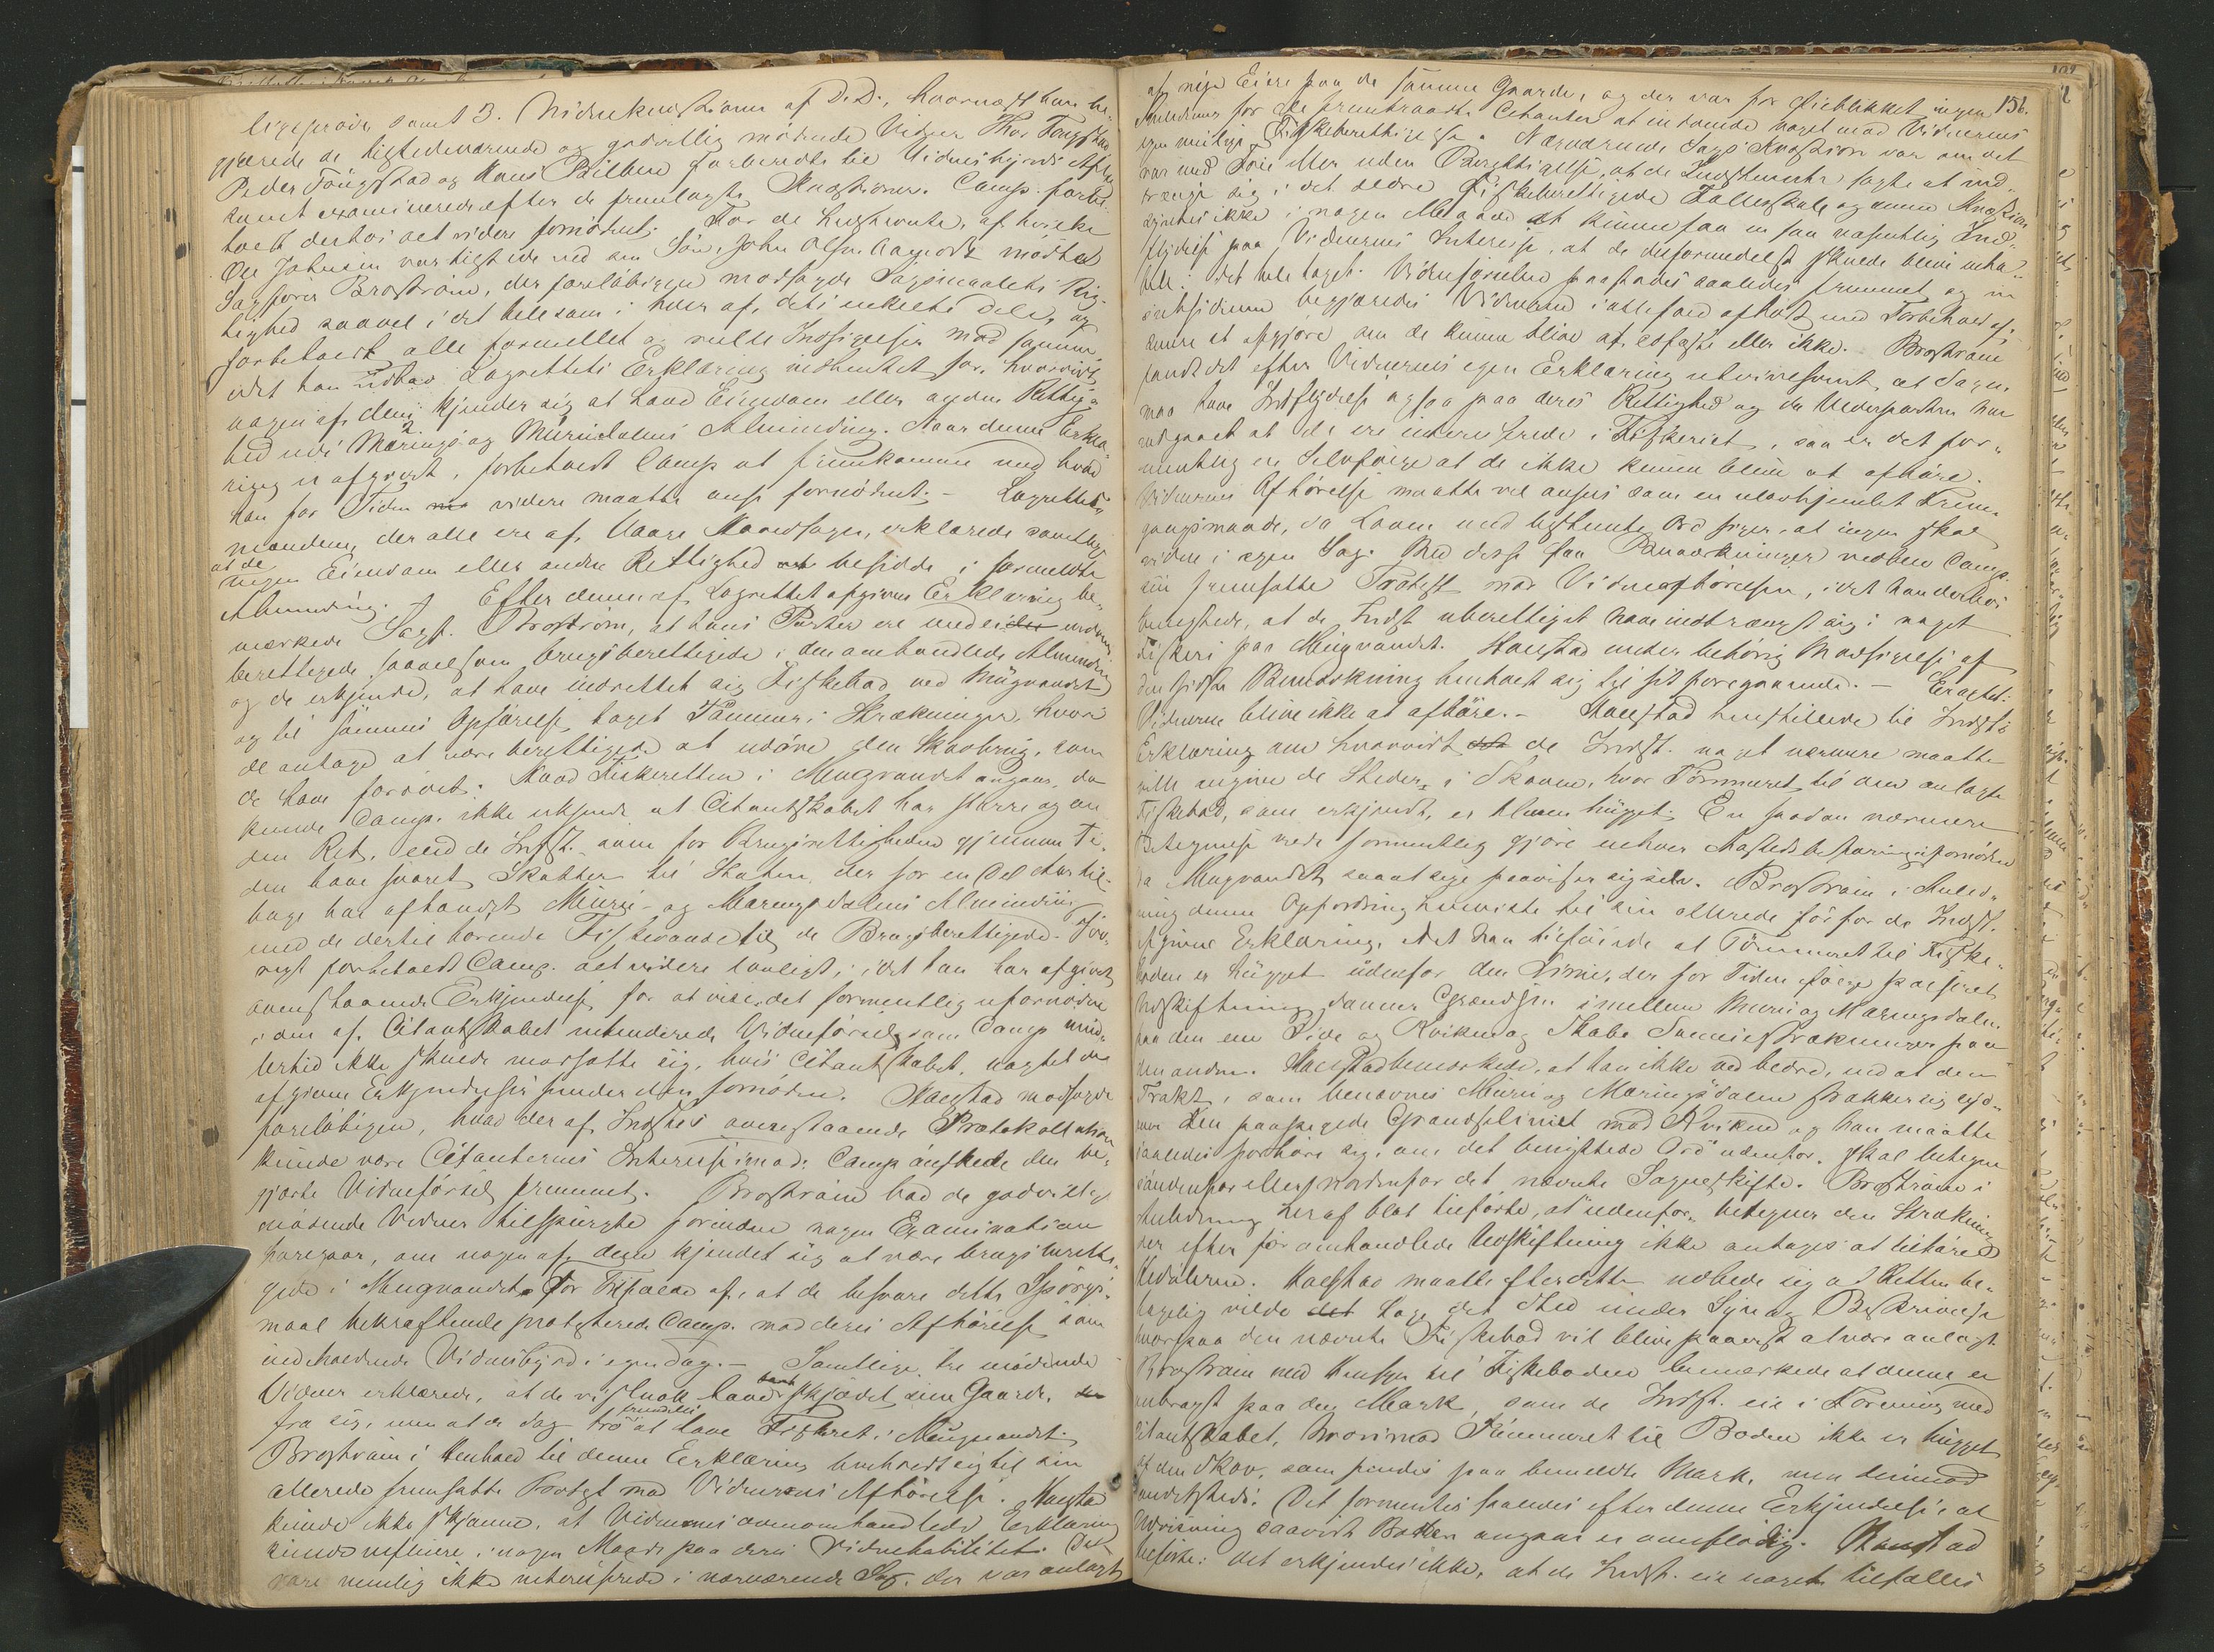 ligeprøve samt 3. Vidnekvæstioner af D. D., hvornæst han be-
gjærede de tilstedeværende og godvillig mødende Vidner Thor Tongstad
Peder Tøngstad og Hans Bilben forberedte til Vidnesbyrds Aflæg
samt examinerede efter de fremlagte Kvæstioner. Comp. forbe-
holdt derhos det videre fornødent. For de Indstevnte, af hvilke
Ole Johnsen var tilstede ved sin Søn, John Olsen mødte
Sagfører Brostrøm, der foreløbigen modsagde Sagsmaalets Rig-
tighed saavel i det hele som i hver af dets enkelte Dele, og
forbeholdt alle formellet og reelle Indsigelser mod samme,
idet han udbad Lagrettets Erklæring indhentet for, hvorvidt
nogen af dem kjender sig at have Eiendom eller anden Rettig-
hed udi Mærings og Murudalens Alminding. Naar denne Erklæ-
ring er afgivet, forbeholdt Comp. at fremkomme med hvad
han for Tiden videre maatte anse fornødent. - Lagrettets
mændene, der alle ere af Vaage Hovedsogn, erklærede samtlig
at de
ingen Eiendom eller anden Rettighed at besidde i formeldte
Alminding. Efter denne af Lagrettet afgivne Erklæring be-
mærkede Sagf. Brostrøm, at hans Parter ere
berettigede saavelsom brugsberettigede i den omhandlede Alminding
og de erkjende, at have indrettet sig Fiskebod ved Mugvandet
og til sammes Opførelse taget Tømmer i Strækninger, hvori
de antage at være berettigede at udøve den Skovbrug, som
de have forøvet. Hvad Fiskeretten i Mugvandet angaar, da
kunde Comp. ikke erkjende at Citantskabet har større og an
den Ret, end de Indst. som for Brugsrettigheden gjennem Ti-
den have svaret Skatter til Staten, der for en Del Aar til-
bage har afhændet Muru- og Mærings dalens Alminding
med de dertil hørende Fiskevande til de Brugsberettigede. Føv-
rigt forbeholdt Comp. det videre lovligt, idet han har afgivet
ovenstaaende Erkjendelse for at vise det formentlig ufornødne
i den af Citantskabet intenderede Vidneførsel, som Comp. imid-
lertid ikke skulde modsætte sig, hvis Citantskabet, uagtet den
afgivne Erkjendelse finder den fornøden. Haestad modsagde
foreløbigen, hvad der af Indstes ovenstaaende Protokollation
kunde være Citanternes Interesse imod. Comp. ønskede den be-
gjærte Vidneførsel fremmet. Brostrøm bad de godvillig
mødende Vidner tilspurgte forinden nogen Examination
foregaar, om nogen af dem kjendes sig at være brugsberetti-
gede i Mugvandet. For Tilfælde af, at de besvare dette Spørgs-
maal bekræftende protesterede Comp. mod deres Afhørelse som
indeholdende Vidnesbyrd i egen Sag. - Samtlige tre mødende
Vidner erklærede, at de vistnok havde skjødet sine Gaarde,
fra sig, men at de dog tro fremdeles at have Fiskeret i Mugvandet.
Brostrøm i Henhold til denne Erklæring henholdt sig til sin
allerede fremsatte Protest mod Vidnernes Afhørelse. Haestad
kunde ikke skjønne, at Vidnernes ovenomhandlede Erklæring
kunde influere i nogen Maade paa deres Vidnehabilitet. De
vare nemlig ikke interesserede i nærværende Sag, der var anlagt
156.
af nye Eiere paa de samme Gaarde, og der var for Øieblikket ingen
Anledning for de fremtraadte Citanter at indvende noget mod Vidnernes
egen mulige Fiskeberettigelse. Nærværende Sags Kvæstion var om det
var med Føie eller uden Berettigelse, at de Indstevnte søgte at ind-
trænge sig i det ældre Fiskeberettigede Fællesskab, og denne Kvæstion
ikke i nogen Maade at kunne faa en saa væsentlig Ind-
flydelse paa Vidnernes Interesse, at de desformedelst skulde blive inha-
bile i det hele taget. Vidneførselen paastodes saaledes fremmet og in
subsidium begjæredes Vidnerne i allefald afhørt med Forbehold af
senere at afgjøre om de kunne blive at edfæste eller ikke. Brostrøm
fandt det efter Vidnernes egen Erklæring utvivlsomt, at Sagen
maa have Indflydelse ogsaa paa deres Rettighed og da Vederparten har
indgaaet at de ere interesserede i Fiskeriet, saa er det for-
mentlig en Selvfølge at de ikke kunne blive at afhøre.
Vidnernes Afhørelse maatte vel ansees som en ulovhjemlet Frem-
gangsmaade, da Loven med bestemte Ord siger, at ingen skal
vidne i egen Sag. Med disse faa Bemærkninger vedblev Comp.
sin fremsatte Protest mod Vidneafhørelsen, idet han derhos
benegtede, at de Indst. uberettiget have indtrængt sig i noget
Fiskeri paa Mugvandet. Haestad under behørig Modsigelse af
den sidste Bemærkning henholdt sig til sit foregaaende. - Eragtet:
Vidnerne blive ikke at afhøre. - Haestad henstillede til Indst.s
Erklæring om hvorvidt de Indst. noget nærmere maatte
ville angive de Steder, i Skoven, hvor Tømmeret til den anlagte
Fiskebod, som erkjendt, er bleven hugget. En saadan nærmere
Betegnelse vilde formentlig gjøre enhver Aastedsbefaring ufornøden
da Mugvandet saa at sige paaviser sig selv. Brostrøm i Anled-
ning denne Opfordring henviste til sin allerede før for de Indst.
afgivne Erklæring, idet han tilføiede at Tømmeret til Fiske-
boden er hugget udenfor den Linie, der for Tiden ifølge passeret
Udskiftning danner Grændsen imellem Muru og Mæringsdalen
paa den ene Side og Kvikne og Skabo Sameiestrækninger paa
den anden. Haestad bemærkede, at han ikke ved bedre, end at den
Trakt, som benævnes Muru og Mæringsdalen strækker sig lige
over den paapegede Grændselinie mod Kvikne og han maatte
saaledes forhøre sig, om det benyttede Ord "udenfor" skal betegne
søndenfor eller nordenfor det nævnte Sogneskifte. Brostrøm i
Anledning heraf blot tilførte, at "udenfor" betegner den Strækning
der efter før omhandlede Udskiftning ikke antages at tilhøre
Kedalerne. Haestad maatte efter dette udbede sig at Retten be-
hagelig vilde tage det Sted under Syn og Beskrivelse
hvorpaa den nævnte Fiskebod vil blive paavist at være anlagt.
Brostrøm med Hensyn til Fiskeboden bemærkede at denne er
anbragt paa den Mark, som de Indst. eie i Forening med
Citantskabet, hvorimod Tømmeret til Boden ikke er hugget
af den Skov, som findes paa bemeldte Mark, men derimod
andetsteds. Det formentes saaledes efter denne Erkjendelse, at
Udvisning saavidt Boden angaar er overflødig. Haestad
tilførte: det erkjendes ikke, at de Indst. eie noget tilfælles